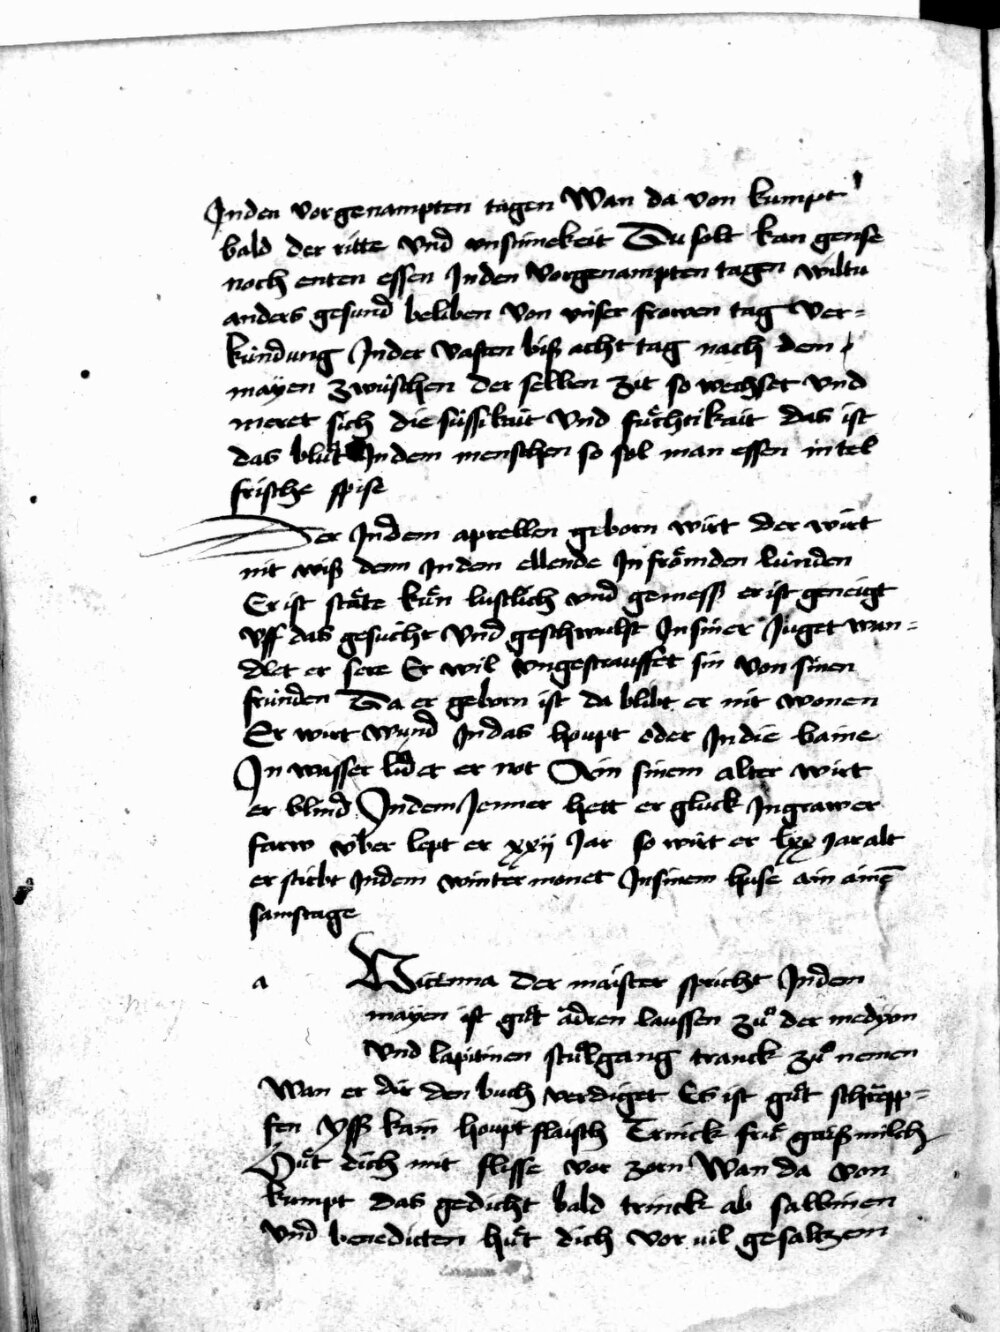 Jn den vorgenampten tagen Wan da von kumpt
bald der ritte vnd vnstimekeit Du solt kan gense
noch enten essen Jn den vorgenampten tagen wiltu
anders gesund beliben von vnser frowen tag ver-
kündung Jn der vasten biß acht tag nach dem
mayen zwüschen der selben zit so wechset vnd
meret sich die süssikait vnd füchtikait das ist
das blut Jn dem menschen so sol man essen in tel
frische spise
Der Jn dem aprellen geborn wirt der wirt
nit wiß denn Jn dem ellende Jn frömden lünden
Er ist stäte kün lustlich vnd gemess er ist geneigt
vff das gesucht vnd geschwulst Jn siner Juget wan-
dlet er sere Er wil vngestrausset sin von sinen
fründen Da er geborn ist da blibt er nit wonen
Er wirt wund Jn das houpt oder Jn die baine
Jn wasser lidet er not Ain sinem alter wirt
er blind Jn dem Jenner hett er gluck Jn grawer
farw vber lept er xxij Jar so wirt er lxx Jar alt
er stirbt Jn dem winter monet Jn sinem huse ain aine
samstage
a
Vicenna der maister spricht Jn dem
mayen ist gut adren laussen zu der medyon
vnd lapitinen stulgang tranck zu nemen
Wan er dir den buch verdiget Es ist gut schrepp-
fen yss kain houpt flaisch Trinck frü gaißmilch
Hüt dich mit flisse vor zorn Wan da von
kumpt das gedicht bald trinck ab salbinen
vnd benedicten hüt dich vor vil gesaltzem